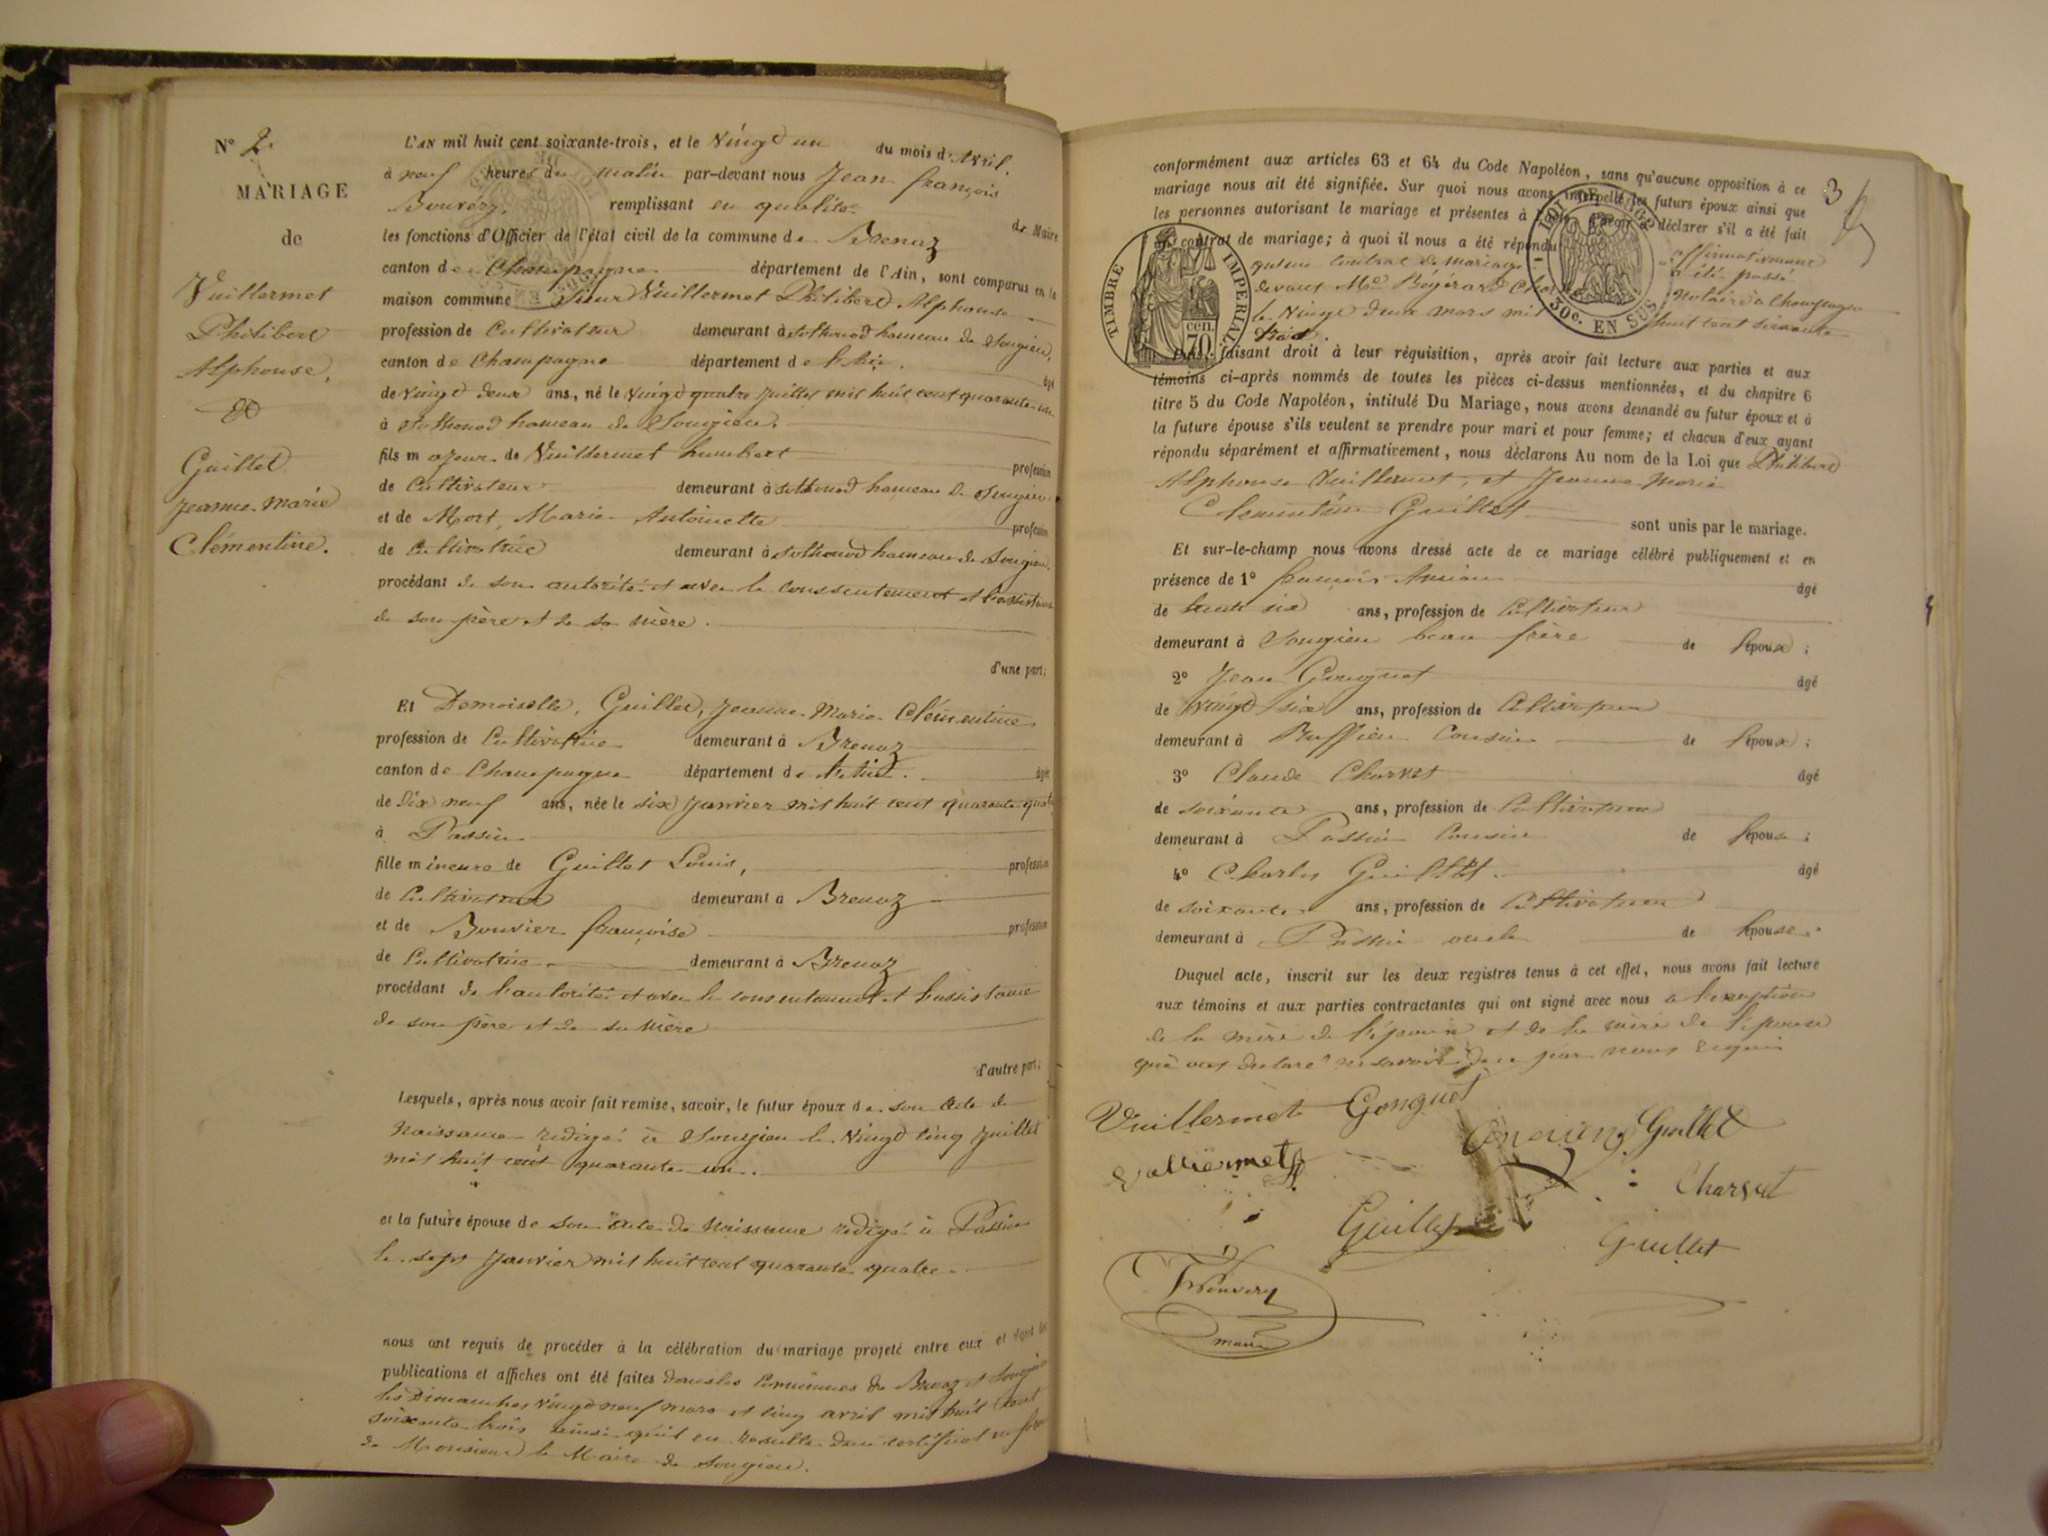 N° 2.
MARIAGE
de
Vuillermet
Philibert
Alphonse,
et
Guillet
Jeanne Marie
Clémentine.
L'AN mil huit cent soixante-trois, et le vingt un du mois d'Avril.
à neuf heures du matin par-devant nous Jean françois
Bouvéry, remplissant en qualité de Maire
les fonctions d'Officier de l'état civil de la commune de Brenaz
canton de Champagne département de l'Ain, sont comparus en la
maison commune Sieur Vuillermet Philibert Alphonse
profession de Cultivateur demeurant à Sothonod hameau de Songieu,
canton de Champagne département de l'Ain. âgé
de vingt deux ans, né le vingt quatre juillet mil huit cent quarante un
à Sothonod hameau de Songieu.
fils majeur de Vuillermet humbert profession
de Cultivateur demeurant à Sothonod hameau de Songieu
et de Mort, Marie Antoinette profession
de Cultivatrice demeurant à Sothonod hameau de Songieu,
procédant de son autorité et avec le conssentement et l'assistance
de son père et de sa mère.
d'une part;
Et Demoiselle, Guillet, Jeanne Marie Clémentine
profession de Cultivatrice demeurant à Brenaz
canton de Champagne département de l'Ain. âgée
de Dix neuf ans, née le six Janvier mil huit cent quarante quatre
à Passin
fille mineure de Guillet Louis, profession
de Cultivateur demeurant à Brenaz
et de Bouvier françoise profession
de Cultivatrice demeurant à Brenaz
procédant de l'autorité et avec le consentement et l'assistance
de son père et de sa mère
d'autre part;
Lesquels, après nous avoir fait remise, savoir, le futur époux de son acte de
Naissance redigé à Songieu le vingt cinq juillet
mil huit cent quarante un.
et la future épouse de son acte de Naissance redigé à Passin
le sept Janvier mil huit cent quarante quatre.
nous ont requis de procéder à la célébration du mariage projeté entre eux et dont les
publications et affiches ont été faites dans les Communes de Brenaz et Songieu
les Dimanches vingt neuf mars et cinq avril mil huit cent
soixante trois ainsi qu'il en resulte d'un certificat
de Monsieur le Maire de Songieu.
3
conformément aux articles 63 et 64 du Code Napoléon, sans qu'aucune opposition à ce
mariage nous ait été signifiée. Sur quoi nous avons interpellé les futurs époux ainsi que
les personnes autorisant le mariage et présentes à déclarer s'il a été fait
contrat de mariage; à quoi il nous a été répondu affirmativement
qu'un contrat de mariage a été passé
devant Me Bégérard notaire à Champagne
le vingt deux mars mil huit cent soixante
trois.
TIMBRE IMPERIAL
70 cen.
LOI DE
30c. EN SUS
faisant droit à leur réquisition, après avoir fait lecture aux parties et aux
témoins ci-après nommés de toutes les pièces ci-dessus mentionnées, et du chapitre 6
titre 5 du Code Napoléon, intitulé Du Mariage, nous avons demandé au futur époux et à
la future épouse s'ils veulent se prendre pour mari et pour femme; et chacun d'eux ayant
répondu séparément et affirmativement, nous déclarons Au nom de la Loi que Philibert
Alphonse Vuillermet, et Jeanne Marie
Clementine Guillet sont unis par le mariage.
Et sur-le-champ nous avons dressé acte de ce mariage célébré publiquement et en
présence de 1° françois âgé
de trente six ans, profession de Cultivateur
demeurant à Songieu beau frère de l'époux;
2° Jean Gonguet âgé
de vingt six ans, profession de Cultivateur
demeurant à Ruffieu Cousin de l'époux;
3° Claude Charvet âgé
de soixante ans, profession de Cultivateur
demeurant à Passin Cousin de l'épouse;
4° Charles Guillet. âgé
de soixante ans, profession de Cultivateur
demeurant à Passin oncle de l'épouse.
Duquel acte, inscrit sur les deux registres tenus à cet effet, nous avons fait lecture
aux témoins et aux parties contractantes qui ont signé avec nous à l'exception
de la mère de l'époux et de la mère de l'épouse
qui ont déclaré ne savoir de ce par nous requis
Vuillermet Gonguet
Guillet
Vuillermet
Charvet
Guillet
Guillet
Bouvery
maire